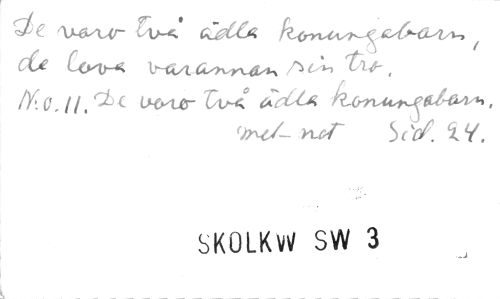 De varo två ädla konungabarn,
de lova varannan sin tro.
N:o. 11. De voro två ädla konungabarn.
met-not Sid. 24.
SKOLKW SW 3